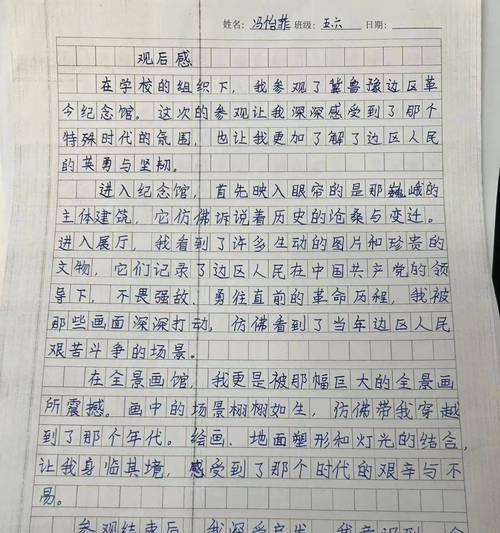 姓名：冯怡菲 班级：五六 日期：
观后感
在学校的组织下，我参观了冀鲁豫边区革
命纪念馆。这次的参观让我深深感受到了那个
特殊时代的氛围，也让我更加了解了边区人民
的英勇与坚韧。
进入纪念馆，首先映入眼帘的是那巍峨的
主体建筑，它仿佛诉说着历史的沧桑与变迁。
进入展厅，我看到了许多生动的图片和珍贵的
文物，它们记录了边区人民在中国共产党的领
导下，不畏强敌、勇往直前的革命历程，我被
那些画面深深打动，仿佛看到了当年边区人民
艰苦斗争的场景。
在全景画馆，我更是被那幅巨大的全景画
所震撼。画中的场景栩栩如生，仿佛带我穿越
到了那个年代。绘画、地面塑形和灯光的结合，
让我身临其境，感受到了那个时代的艰辛与不
易。
参观结束后，我深受启发。我意识到，今